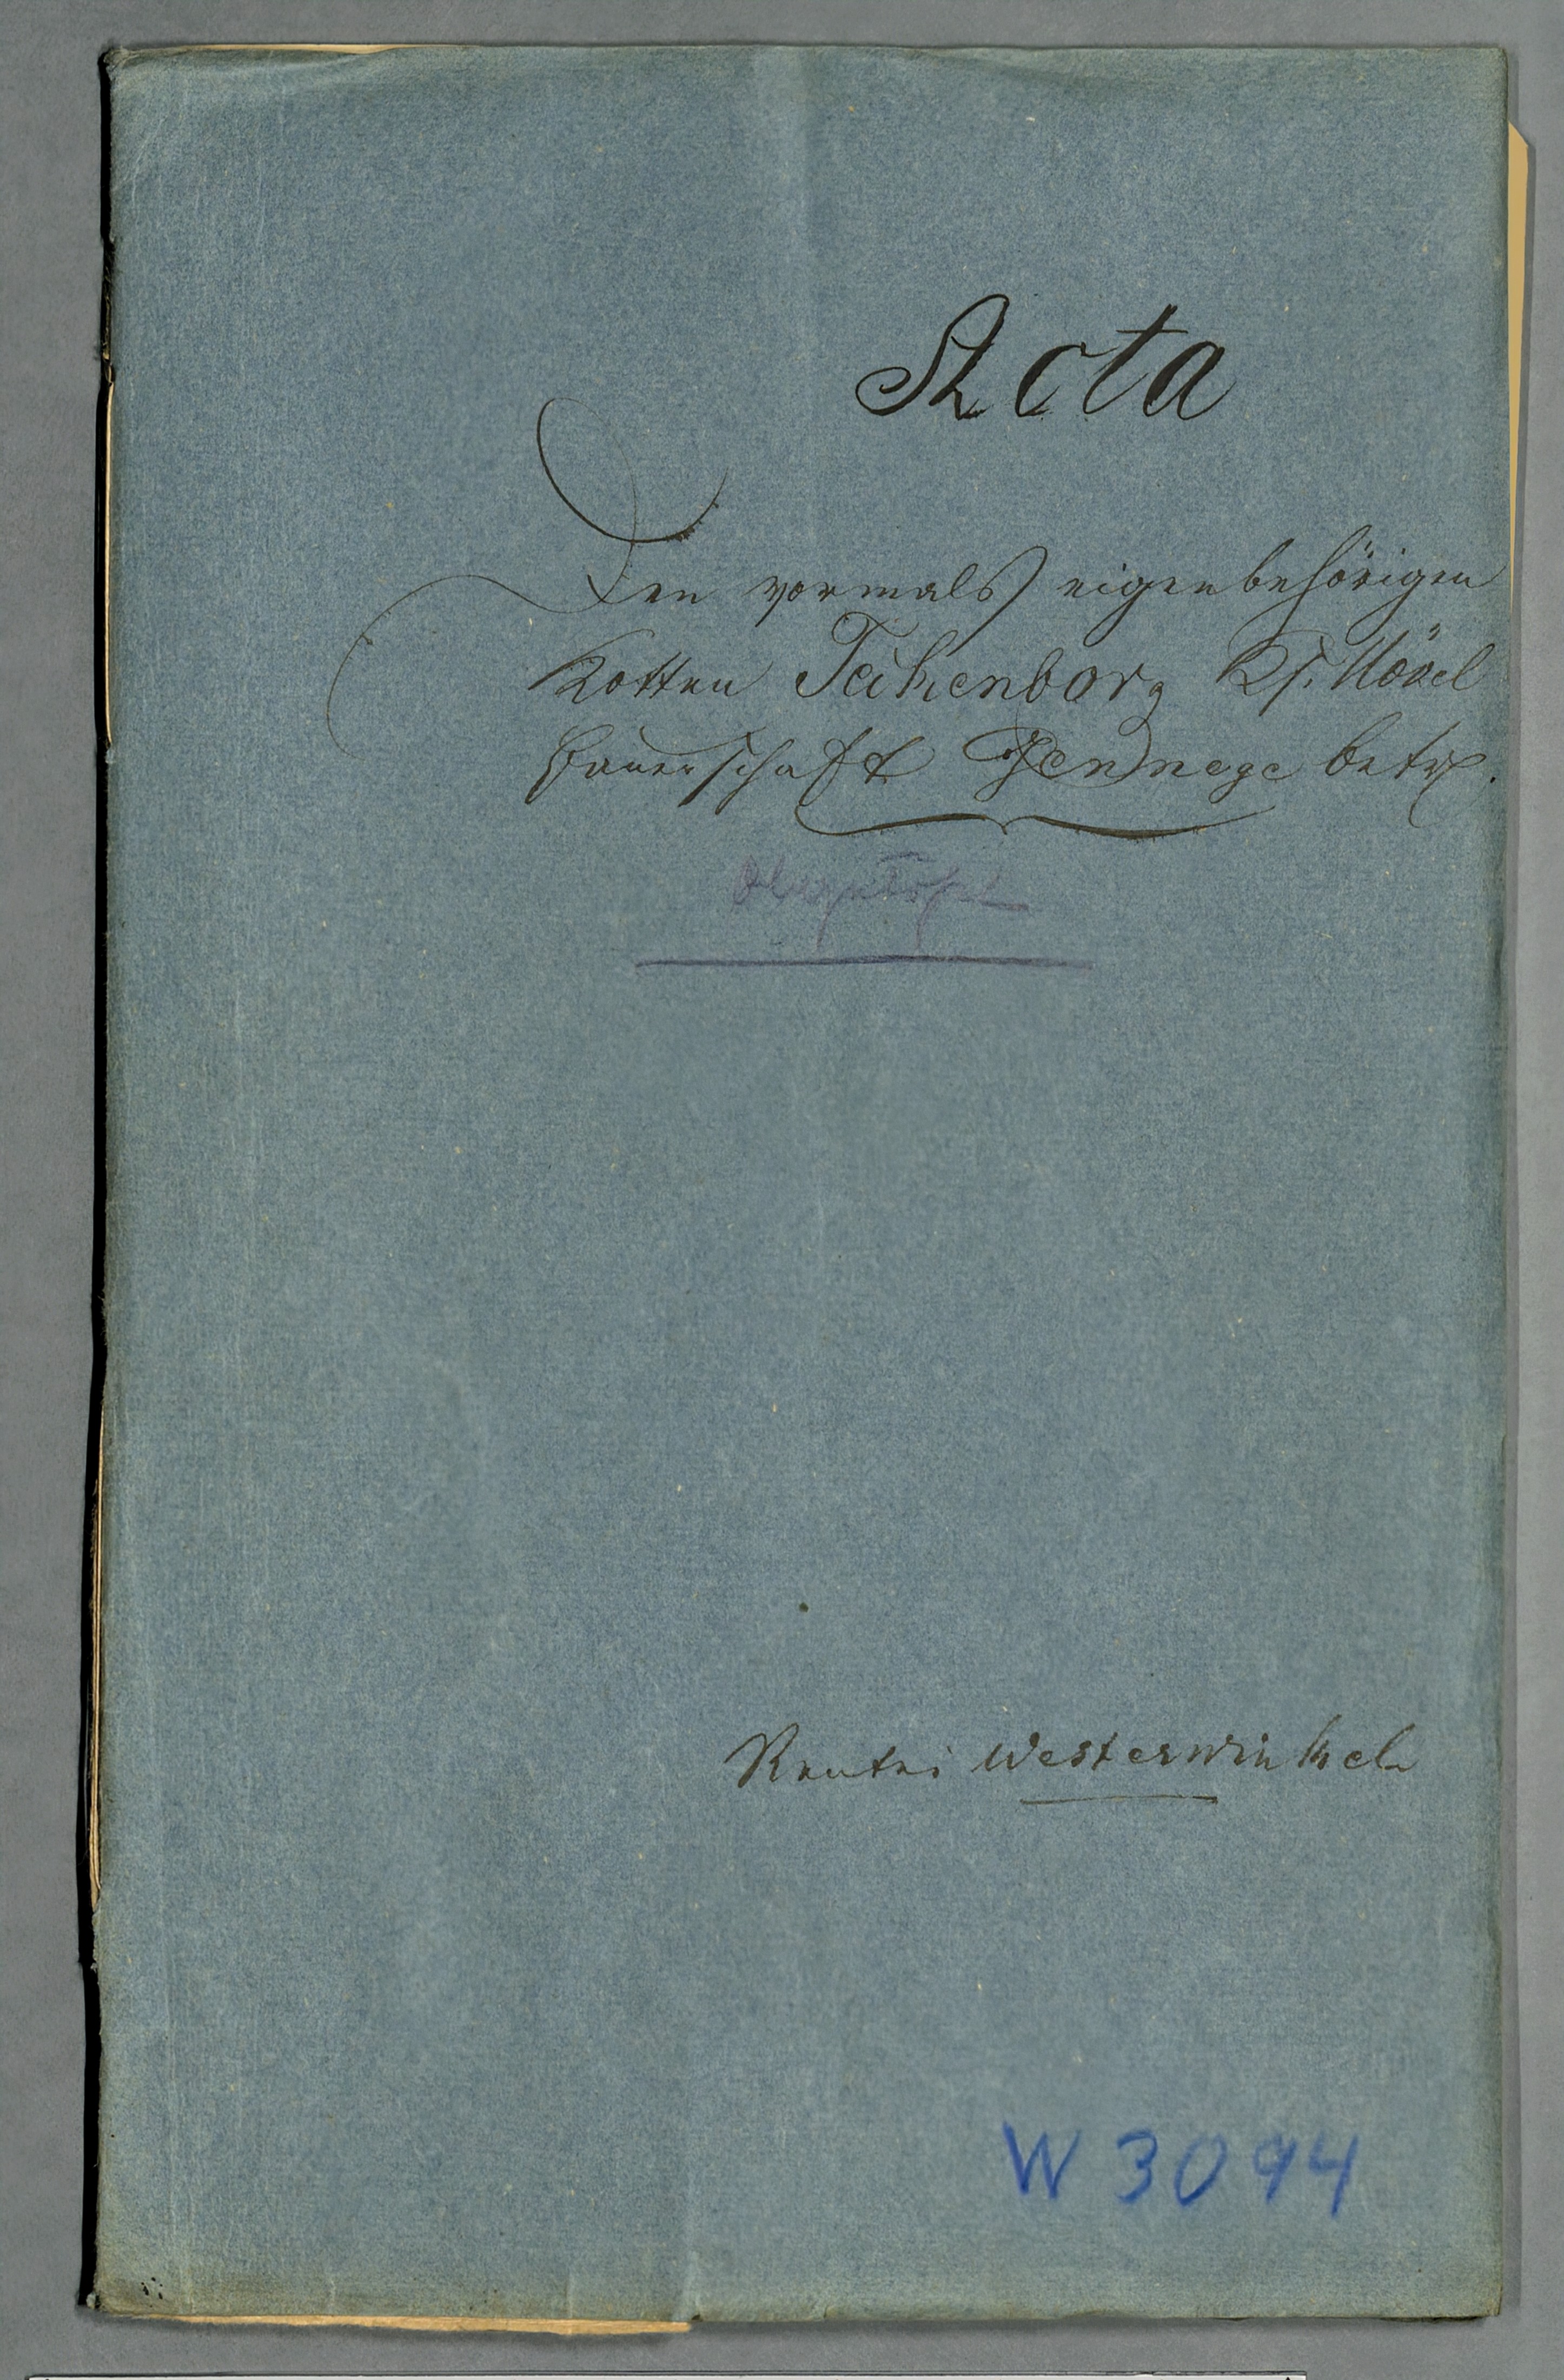 Acta
Den vormals eigenbehörigen
Kotten Teckenborg Ksp. Hövel
Bauerschaft Gennege betr.
abgelöst
Rentei Westerwinkel
W 3094